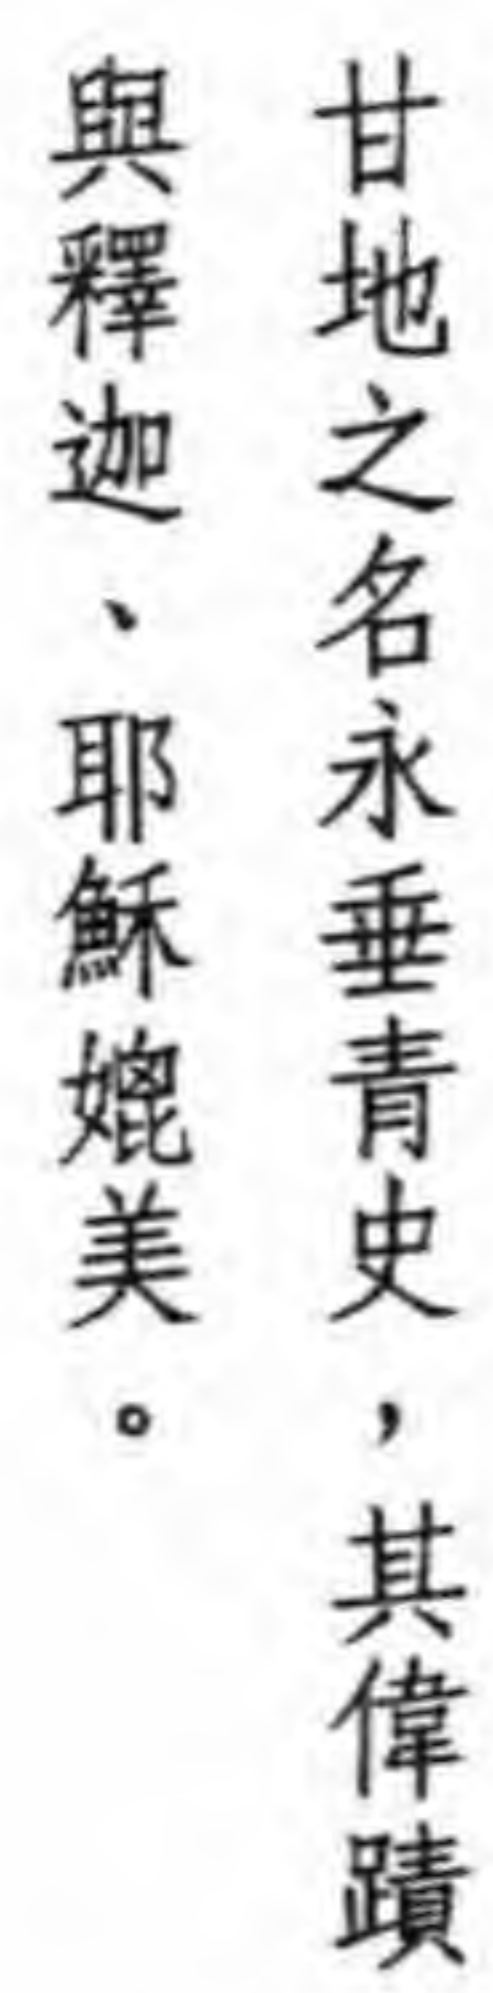 甘地之名永垂青史，其偉蹟
與釋迦、耶穌媲美。